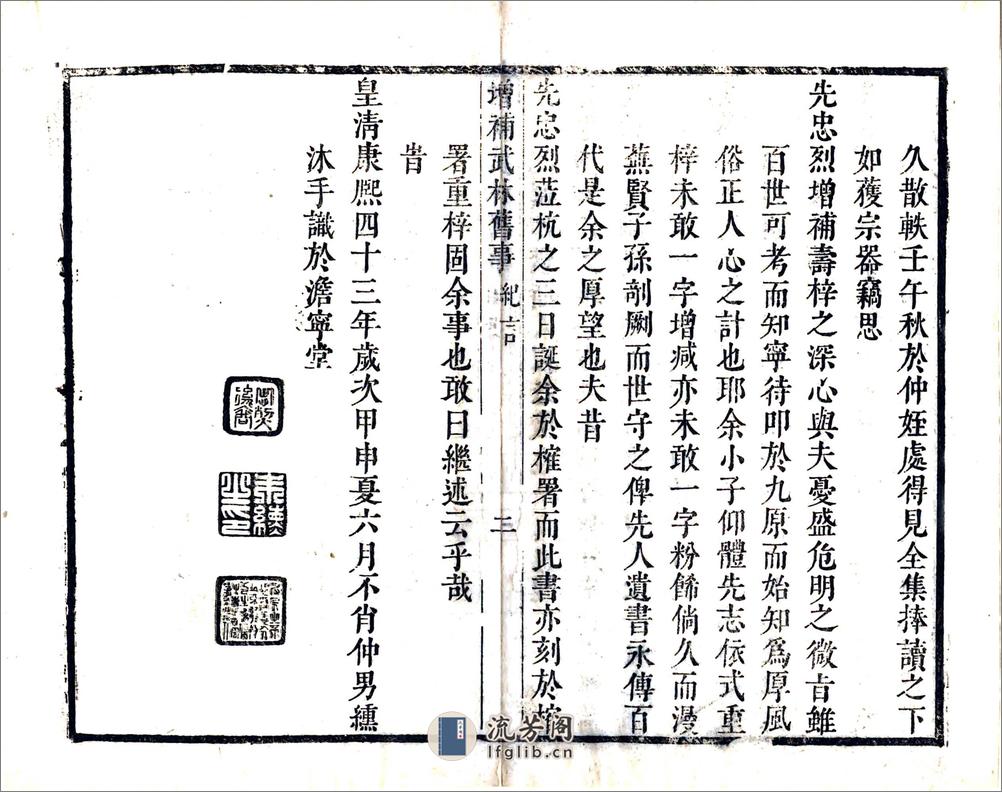 久散軼壬午秋於仲姪處得見全集捧讀之下
如獲宗器竊思
先忠烈增補壽梓之深心與夫憂盛危明之微旨雖
百世可考而知寧待叩於九原而始知爲厚風
俗正人心之計也耶余小子仰體先志依式重
梓未敢一字增減亦未敢一字粉餙倘久而漫
蕪賢子孫剞劂而世守之俾先人遺書永傳百
代是余之厚望也夫昔
先忠烈蒞杭之三日誕余於榷署而此書亦刻於榷
增補武林舊事 紀言 三
署重梓固余事也敢曰繼述云乎哉
旹
皇清康熙四十三年歲次甲申夏六月不肖仲男纁
沐手識於澹寧堂
流芳阁
lfglib.cn